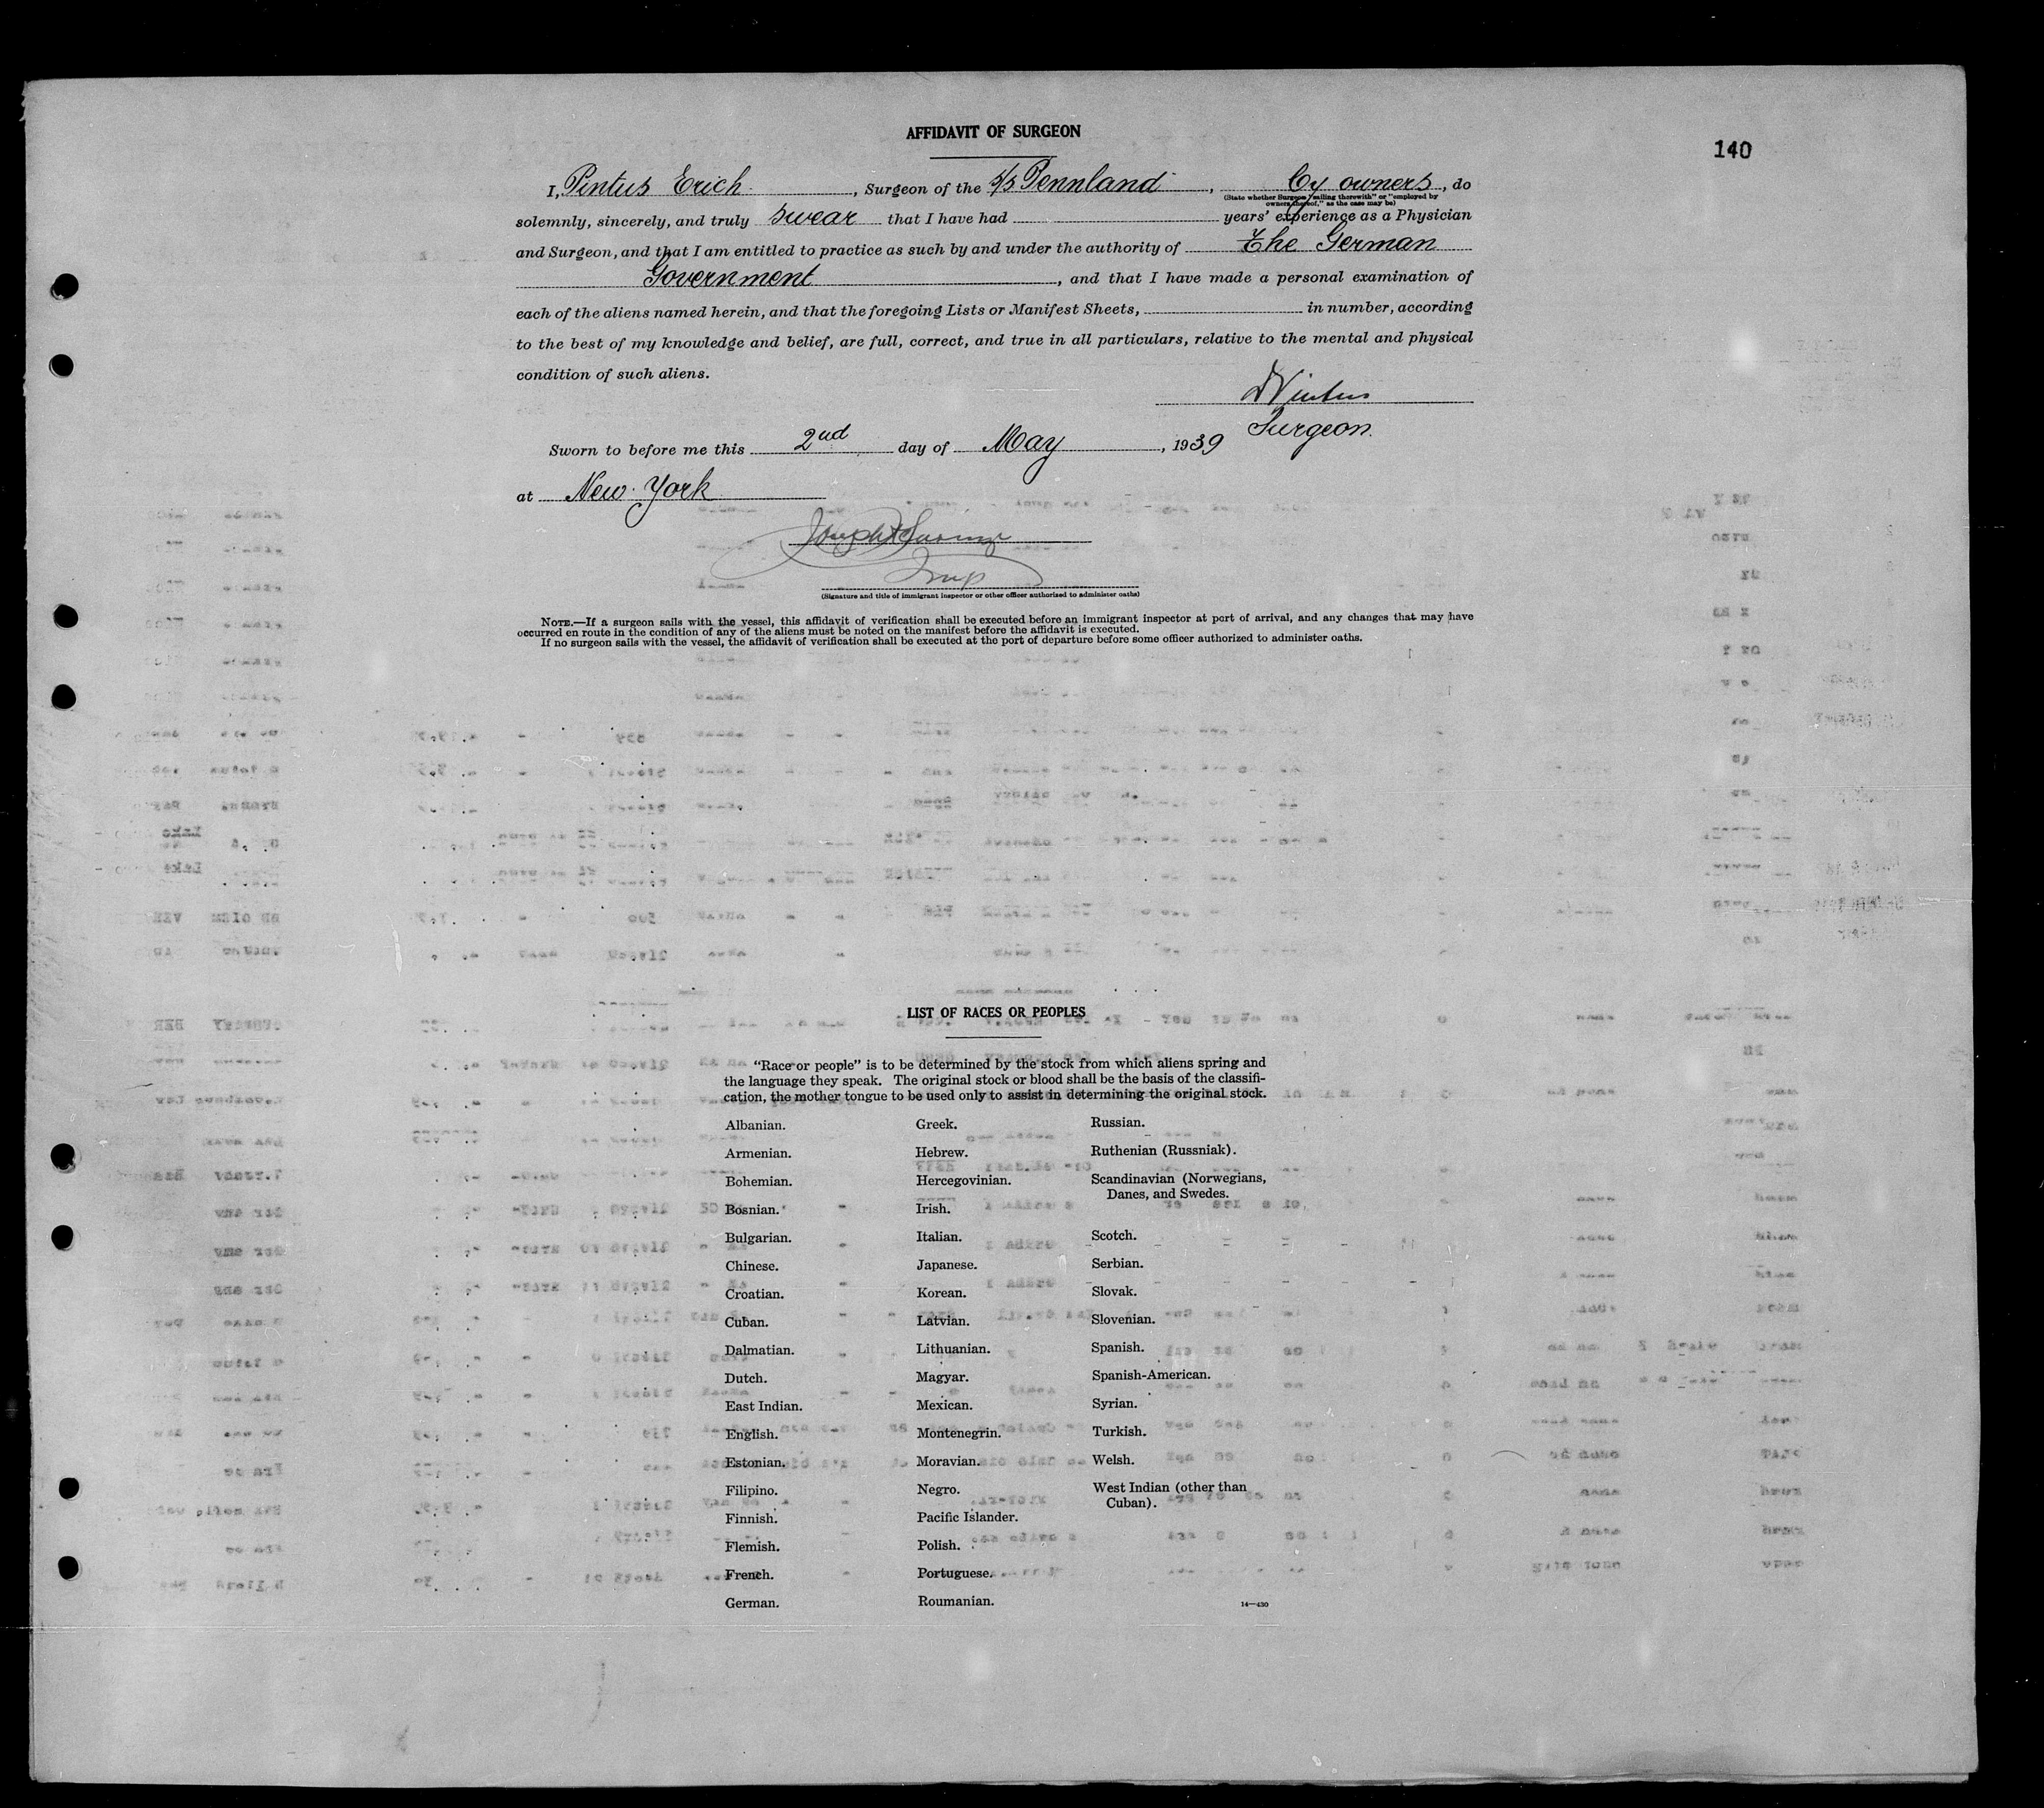 AFFIDAVIT OF SURGEON
140
I, Pintus Erich, Surgeon of the S/S Pennland, by owners, do
(State whether Surgeon "sailing therewith" or "employed by
owners thereof," as the case may be)
solemnly, sincerely, and truly swear that I have had years' experience as a Physician
and Surgeon, and that I am entitled to practice as such by and under the authority of the German
Government, and that I have made a personal examination of
each of the aliens named herein, and that the foregoing Lists or Manifest Sheets, in number, according
to the best of my knowledge and belief, are full, correct, and true in all particulars, relative to the mental and physical
condition of such aliens.
Surgeon.
Sworn to before me this 2nd day of May, 1939
at New York
Insp
(Signature and title of immigrant inspector or other officer authorized to administer oaths)
NOTE.—If a surgeon sails with the vessel, this affidavit of verification shall be executed before an immigrant inspector at port of arrival, and any changes that may have
occurred en route in the condition of any of the aliens must be noted on the manifest before the affidavit is executed.
If no surgeon sails with the vessel, the affidavit of verification shall be executed at the port of departure before some officer authorized to administer oaths.
LIST OF RACES OR PEOPLES
"Race or people" is to be determined by the stock from which aliens spring and
the language they speak. The original stock or blood shall be the basis of the classifi-
cation, the mother tongue to be used only to assist in determining the original stock.
Albanian.
Armenian.
Bohemian.
Bosnian.
Bulgarian.
Chinese.
Croatian.
Cuban.
Dalmatian.
Dutch.
East Indian.
English.
Estonian.
Filipino.
Finnish.
Flemish.
French.
German.
Greek.
Hebrew.
Hercegovinian.
Irish.
Italian.
Japanese.
Korean.
Latvian.
Lithuanian.
Magyar.
Mexican.
Montenegrin.
Moravian.
Negro.
Pacific Islander.
Polish.
Portuguese.
Roumanian.
Russian.
Ruthenian (Russniak).
Scandinavian (Norwegians,
Danes, and Swedes.
Scotch.
Serbian.
Slovak.
Slovenian.
Spanish.
Spanish-American.
Syrian.
Turkish.
Welsh.
West Indian (other than
Cuban).
14—430